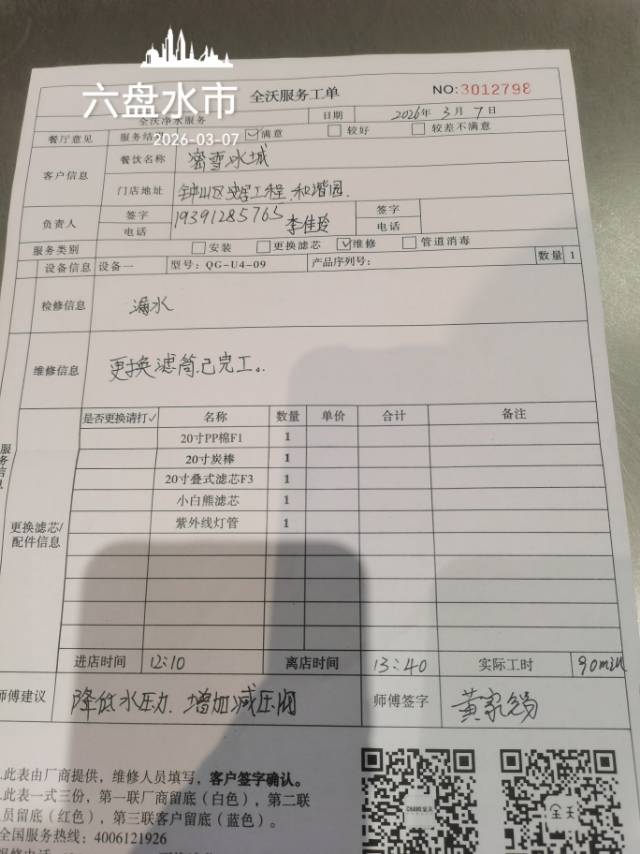 六盘水市
2026-03-07
全沃服务工单
NO:3012798
全沃净水服务
日期 2026年 3月 7日
餐厅意见 服务结 ☑满意 □较好 □较差不满意
客户信息
餐饮名称 蜜雪冰城
门店地址 钟山区 工程 和谐园
负责人 签字 电话 19391285765 李佳玲 签字 电话
服务类别 □安装 □更换滤芯 ☑维修 □管道消毒
设备信息 设备一 型号:QG-U4-09 产品序列号: 数量 1
检修信息 漏水
维修信息 更换滤筒.已完工。
服务信息
更换滤芯/配件信息
是否更换请打✓ 名称 数量 单价 合计 备注
20寸PP棉F1 1
20寸炭棒 1
20寸叠式滤芯F3 1
小白熊滤芯 1
紫外线灯管 1
进店时间 12:10 离店时间 13:40 实际工时 90min
师傅建议 降低水压力. 增加减压阀 师傅签字 黄家
.此表由厂商提供，维修人员填写，客户签字确认。
.此表一式三份，第一联厂商留底（白色），第二联
员留底（红色），第三联客户留底（蓝色）。
全国服务热线：4006121926